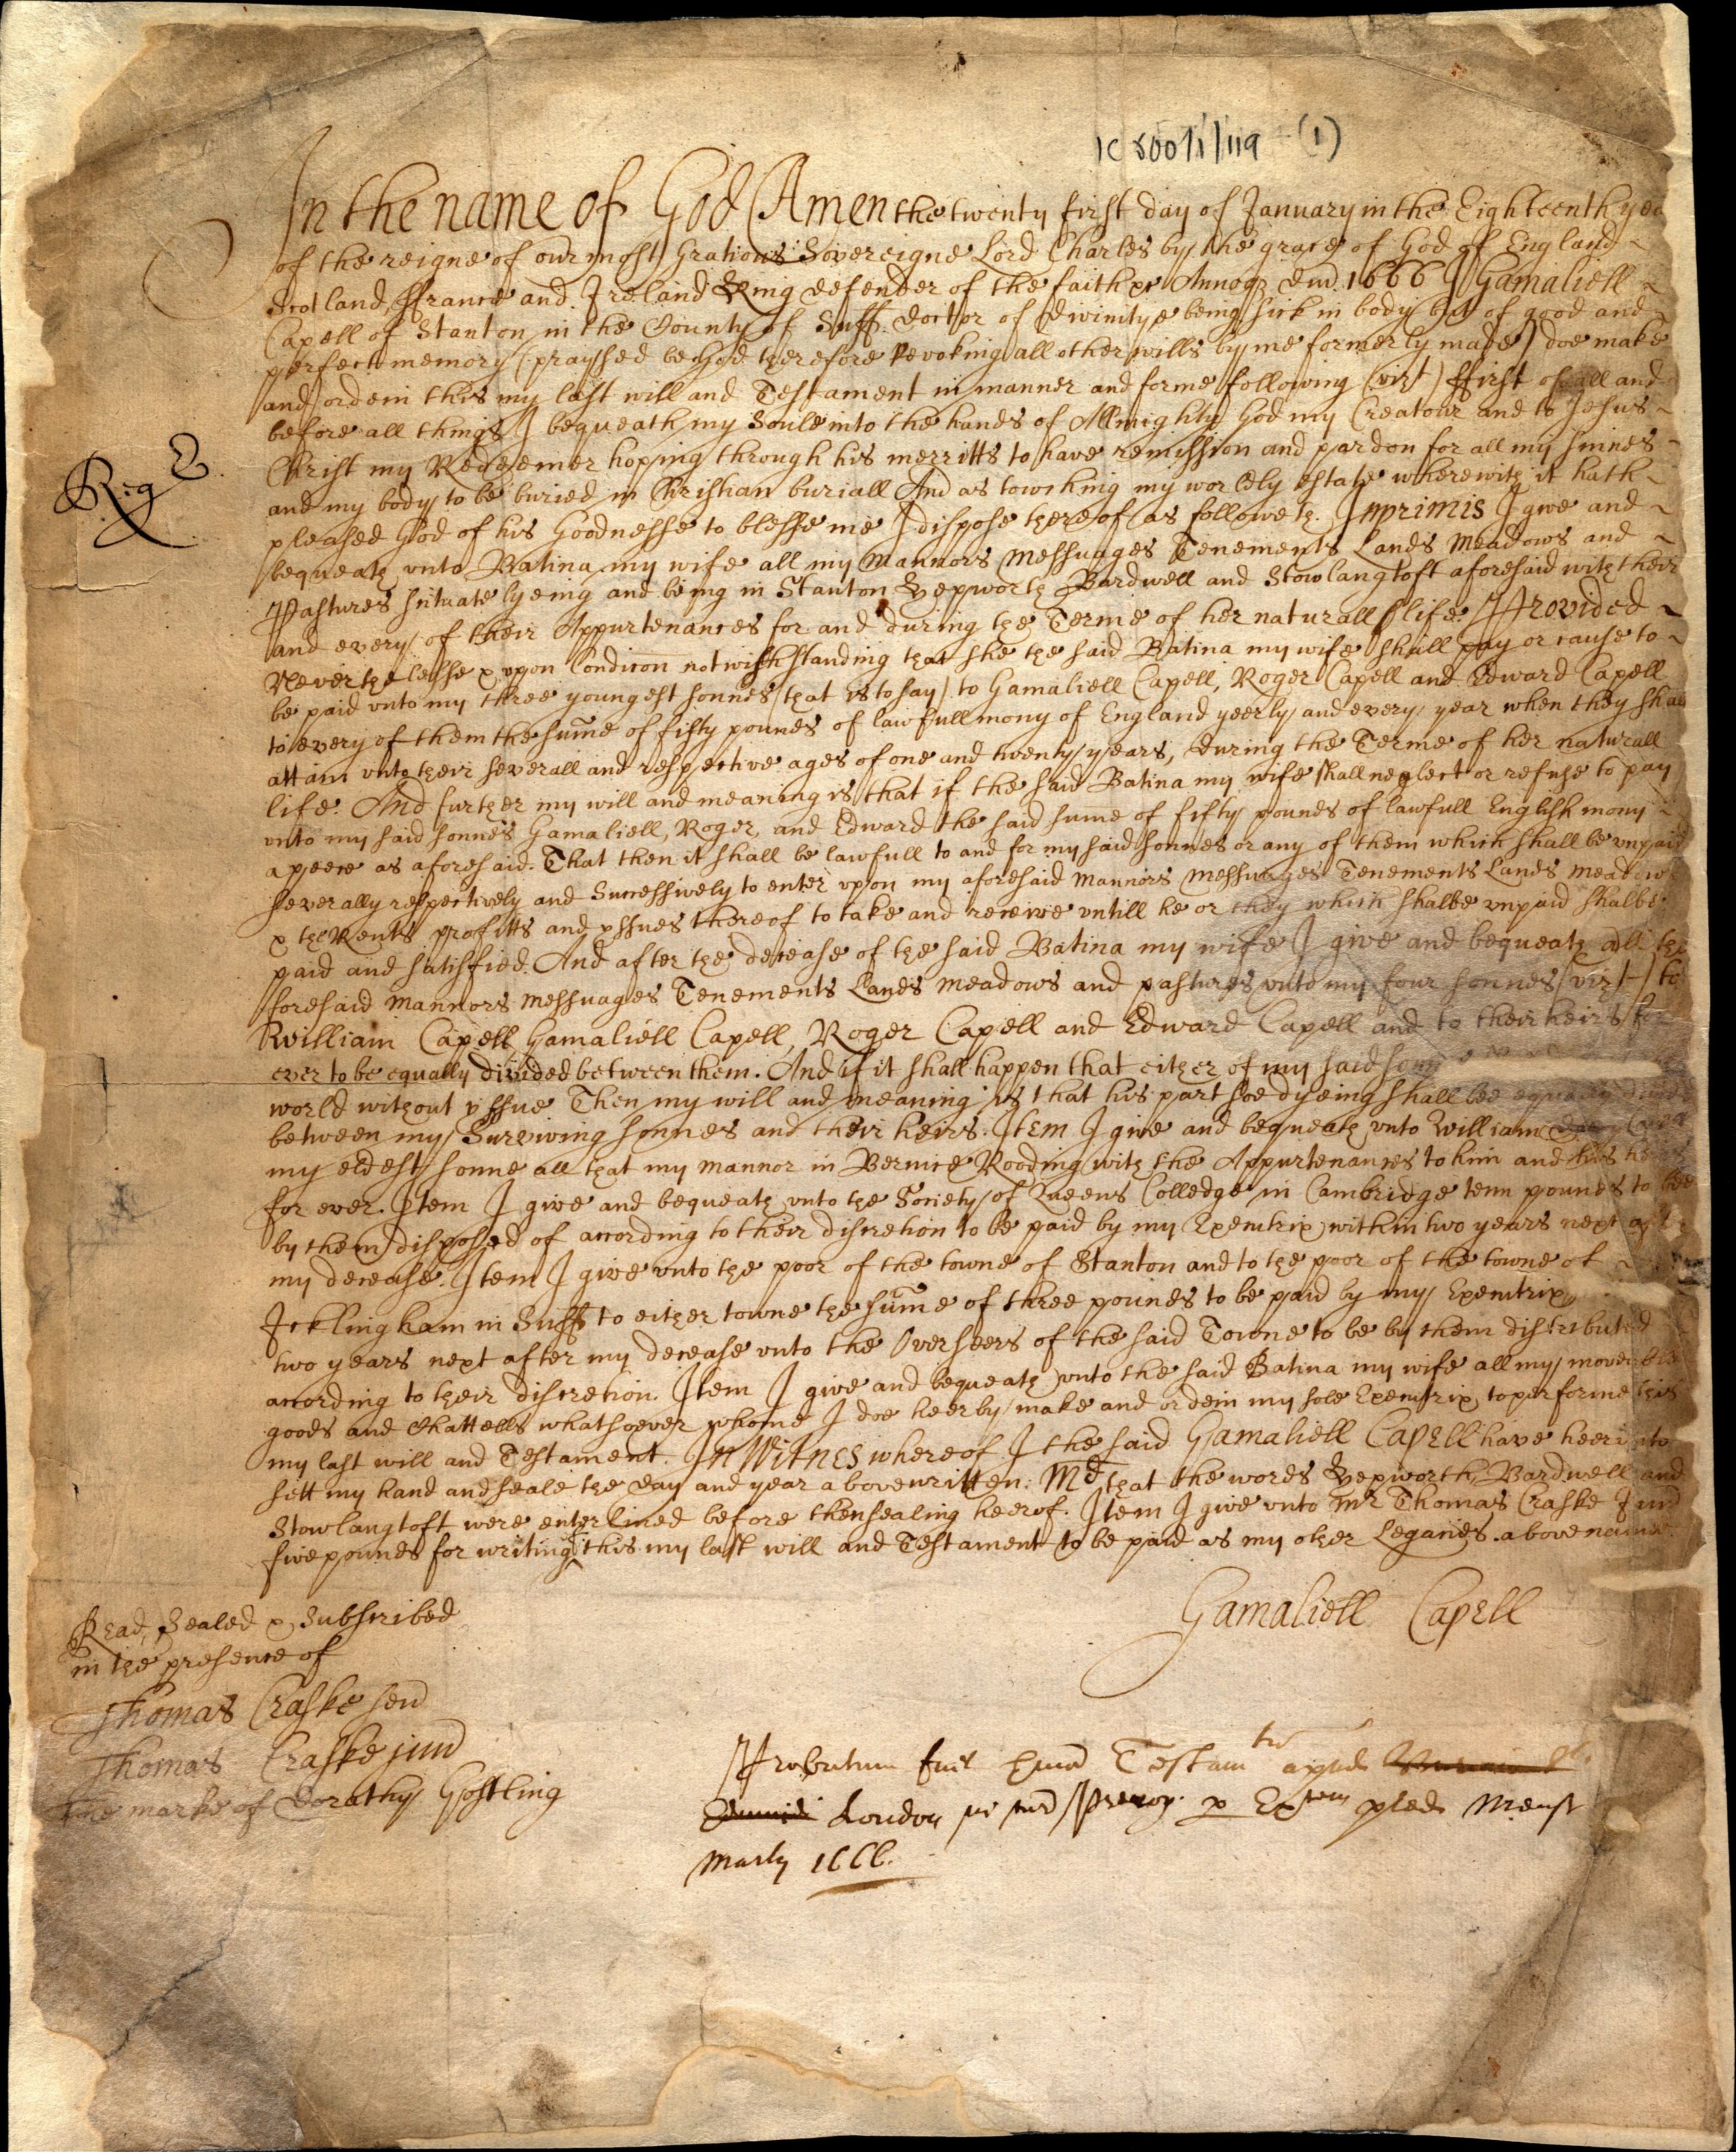 IC 500/1/119 (1)
In the name of God Amen the twenty first day of January in the Eighteenth yea
of the reigne of our most Gratious Sovereigne Lord Charles by the grace of God of England
Scotland, ffrance and Ireland King defender of the faith &c Annoq3 dm̄ 1666 I Gamaliell
Capell of Stanton in the County of Suff. doctor of divinitye being sick in body but of good and
perfect memory (praysed be God therefore revoking all other wills by me formerly made) doe make
and ordein this my last will and Testament in manner and forme following (vizt) ffirst of all and
before all things I bequeath my Soule into the hands of Allmighty God my Creatour and to Jesus
Christ my Redeemer hoping through his merritts to have remission and pardon for all my sinnes
and my body to be buried in Christian buriall And as towching my worldly estate wherewith it hath
pleased God of his Goodnesse to blesse me I dispose thereof as followeth. Inprimis I give and
bequeath vnto Batina my wife all my Mannors Messuages Tenements Lands Meadows and
Pastures situate lyeing and being in Stanton Hepworth Bardwell and Stowlangtoft aforesaid with their
and every of their Appurtenances for and during the Terme of her naturall life. Provided
Neverthelesse & vpon Condicon notwithstanding that she the said Batina my wife shall pay or cause to
be paid vnto my three youngest sonnes (that is to say) to Gamaliell Capell, Roger Capell and Edward Capell
to every of them the sum̄e of fifty pounds of lawfull mony of England yeerly and every year when they shall
attain vnto their severall and respective ages of one and twenty years, during the Terme of her naturall
life. And further my will and meaning is that if the said Batina my wife shall neglect or refuse to pay
vnto my said sonnes Gamaliell, Roger, and Edward the said sume of fifty pounds of lawfull English mony
apeece as aforesaid. That then it shall be lawfull to and for my said sonnes or any of them which shall be vnpaid
severally respectively and Successively to enter vpon my aforesaid Mannors Messuages Tenements Lands Meadows
& the Rents profitts and yssues thereof to take and receive vntill he or they which shalbe vnpaid shalbe
paid and satisfied. And after the decease of the said Batina my wife I give and bequeath all the
foresaid Mannors Messuages Tenements Lands Meadows and pastures vnto my four sonnes (vizt) to
William Capell Gamaliell Capell, Roger Capell and Edward Capell and to their heirs for
ever to be equally divided between them. And if it shall happen that either of my said
world without yssue Then my will and meaning is that his part soe dyeing shall bee equally
between my Surviving sonnes and their heirs. Item I give and bequeath vnto William Capell
my eldest sonne all that my mannor in Bernice Rooding with the Appurtenances to him and his heirs
for ever. Item I give and bequeath vnto the Society of Queens Colledge in Cambridge tenn pounds to bee
by them disposed of according to their discretion to be paid by my Executrix within two years next after
my decease. Item I give vnto the poor of the towne of Stanton and to the poor of the towne of
Icklingham in Suff to either towne the sum̄e of three pounds to be paid by my Executrix
two years next after my decease vnto the Overseers of the said Towne to be by them distributed
according to their discretion. Item I give and bequeath vnto the said Batina my wife all my moveable
goods and chattells whatsoever whome I doe heerby make and ordein my sole Executrix to performe this
my last will and Testament. In Witnes whereof I the said Gamaliell Capell have heervnto
sett my hand and seale the day and year above written. Md that the words Hepworth, Bardwell and
Stowlangtoft were enterlined before thensealing heerof. Item I give vnto Mr Thomas Craske Jund
five pounds for writing this my last will and Testament to be paid as my other Legacies above
Rig E
Gamaliell Capell
Read, Sealed & Subscribed
in the presence of
Thomas Craske send
Thomas Craske jund
The marke of Dorathy Gostling
Probatum fuit Testam apud
London Ex Mense
Martij 1666.